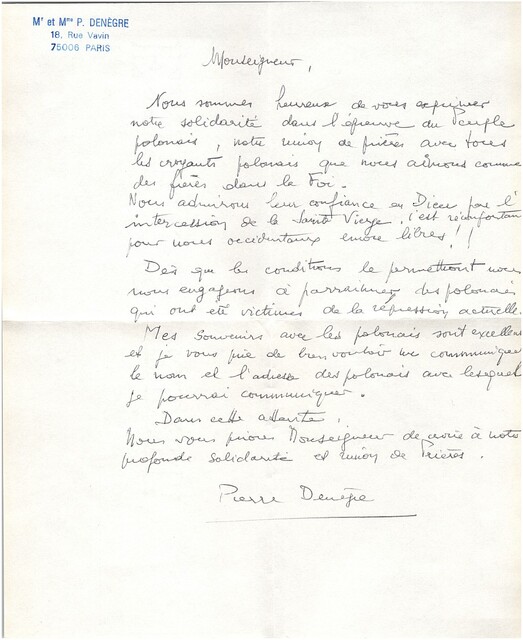 Mr et Mme P. DENÈGRE
18, Rue Vavin
75006 PARIS
Monseigneur,
Nous sommes heureux de vous exprimer
notre solidarité dans l'épreuve du Peuple
polonais, notre union de prières avec tous
les croyants polonais que nous aimons comme
des frères dans la Foi.
Nous admirons leur confiance en Dieu par l'
intercession de la Sainte Vierge. C'est réconfortant
pour nous occidentaux encore libres!!
Dès que les conditions le permettront nous
nous engageons à parrainer des polonais
qui ont été victimes de la répression actuelle.
Mes souvenirs avec les polonais sont excellents
et je vous prie de bien vouloir me communiquer
le nom et l'adresse des polonais avec lesquels
je pourrai communiquer.
Dans cette attente,
Nous vous prions Monseigneur de croire à notre
profonde solidarité et union de Prières.
Pierre Denègre